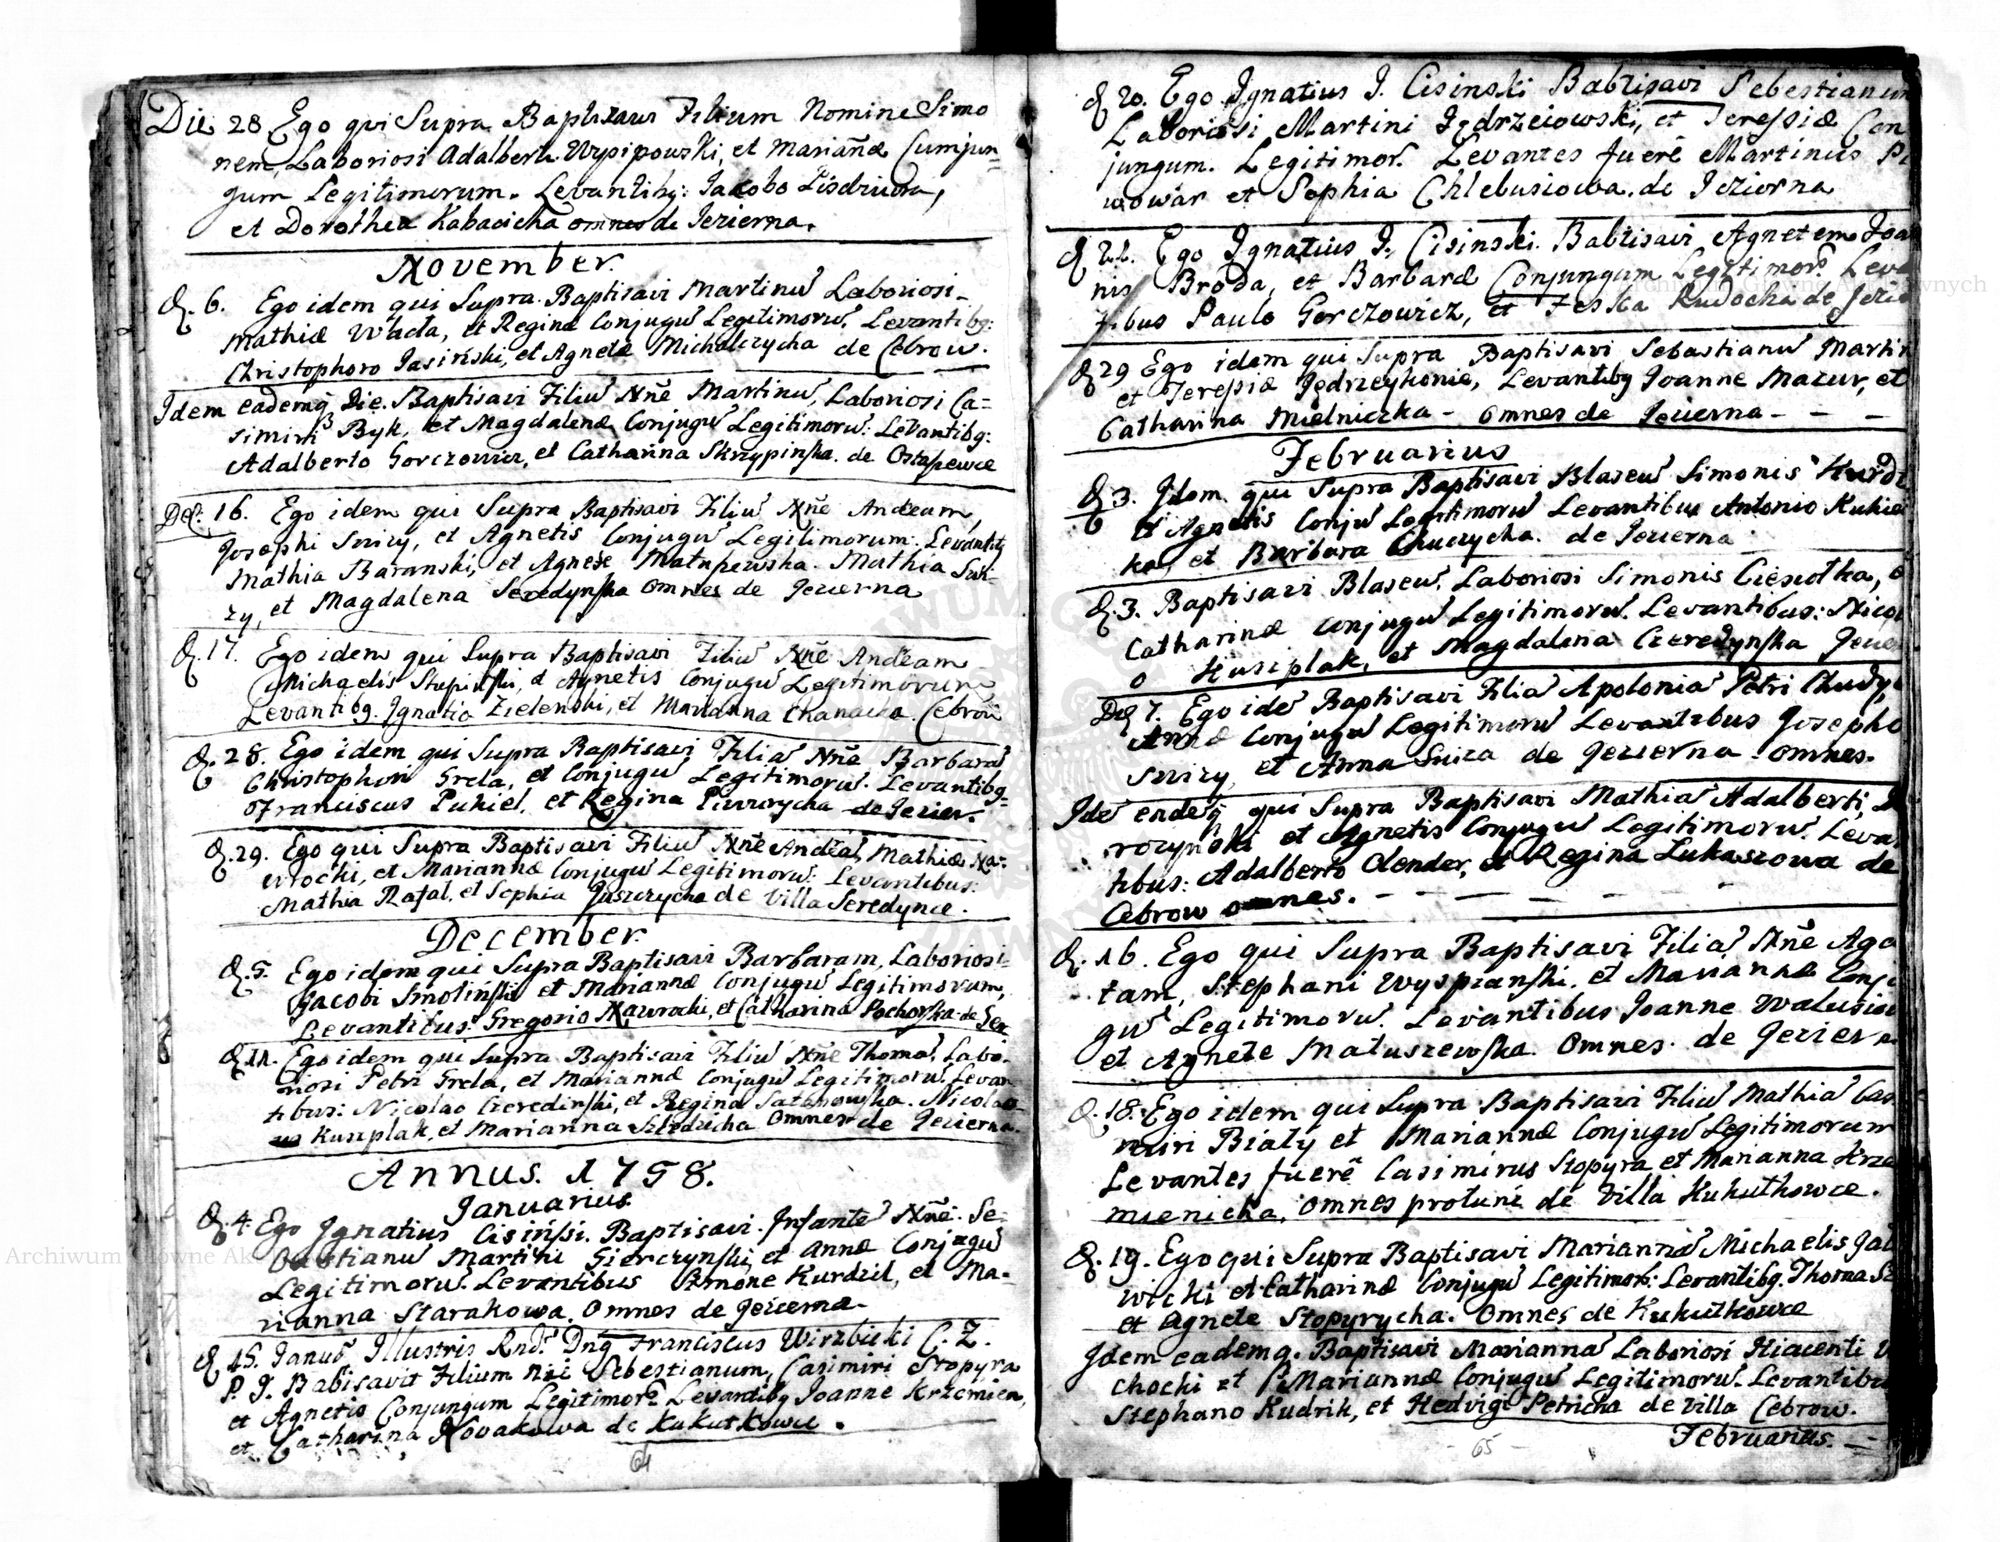 Die 28 Ego qui Supra Baptisavi Filium Nomine Simo
nem, Laboriosi Adalberti Wypipowski, et Mariañæ Cumjun-
gum Legitimorum. Levantibq: Jacobo Lisdziuora,
et Dorothea Kabacicha omnes de Jezierna.
November.
d. 6. Ego idem qui Supra Baptisavi Martinu Laboriosi
Mathiæ Wada, et Reginæ Conjugu Legitimoru. Levantibq:
Christophoro Jasiński, et Agnete Michalczycha de Cebrow.
Idem eademq Die. Baptisavi Filiu Nñe Martinu, Laboriosi Ca=
simiri Byk, et Magdalenæ Conjugu Legitimoru: Levantibq:
Adalberto Gorczowicz, et Catharina Skrzypinska de Ostapowce
Die: 16. Ego idem qui Supra Baptisavi Filiu Nñe Andream,
Josephi Swizy, et Agnetis Conjugu Legitimorum. Levantibq
Mathia Baranski, et Agnese Matuszewska. Mathia Swi-
zy, et Magdalena Seredynska omnes de Jezierna
d. 17. Ego idem qui Supra Baptisavi Filiu Nñe Andream
Michaelis Stupinski, et Agnetis Conjugu Legitimorum
Levantibq. Ignatio Zielenski, et Marianna Chanacka. Cebrow
d. 28. Ego idem qui Supra Baptisavi Filia Nñe Barbara
Christophori Grela, et Conjugu Legitimoru. Levantibq-
Franciscus Pukiel, et Regina Piwowrycha de Jezier.
d. 29. Ego qui Supra Baptisavi Filiu Nñe Andrea, Mathiæ Na-
wrocki, et Mariannæ Conjugu Legitimoru: Levantibus:
Mathia Rafal, et Sophia Juszczycha de Villa Seredynce.
December.
d. 5. Ego idem qui Supra Baptisavi Barbaram, Laboriosi
Jacobi Smoliński et Mariannæ Conjugu Legitimorum,
Levantibus: Gregorio Nawrocki, et Catharina Pochorska de Jez
d. 11. Ego idem qui Supra Baptisavi Filiu Nñe Thoma, Labo-
riosi Petri Grela, et Mariannæ Conjugu Legitimoru. Levan
tibus: Nicolao Czeredinski, et Regina Satanowska. Nicolao
Kusiplak, et Marianna omnes de Jezierna.
Annus. 1758.
Januarius.
d. 4. Ego Ignatius Cisińsi. Baptisavi. Infante Nñe. Se-
bastianu Martini Gierczynski, et Annæ Conjugu
Legitimoru. Levantibus Simone Kurdzil, et Ma-
rianna Starakowa. Omnes de Jezierna.
d. 15. Januš Illustris Rnd. Dnq Franciscus Wirzbicki C. Z.
P. J. Babisavit Filium nñi Sebestianum, Casimiri Stopyra
et Agnetis Conjungum Legitimor Levantibq Joanne Krzemien,
et Catharina Novakowa de Kukutkowce.
64
d. 20. Ego Ignatius J. Cisinski Babtisavi Sebestianum
Laboriosi Martini Jędrzeiowski, et Teresiæ Con
jungum. Legitimor. Levantes fuerẽ Martinus Pi
wowar et Sophia Chlebusiowa. de Jeziorna
d. 22. Ego Ignatius J. Cisinski. Babtisavi Agnetem Joan
nis Broda, et Barbaræ Conjungum Legitimor. Leva
tibus Paulo Gorczowicz, et Feska Rudocka de Jezio
d. 29 Ego idem qui Supra Baptisavi Sebastianu Martin
et Teresiæ Jędrzeykonie, Levantibq Joanne Mazur, et
Catharina Mielniczka - omnes de Jezierna - - -
Februarius
d. 3. Idem qui Supra Baptisavi Blaseu Simonis Kurdi
et Agnetis Conju Legitimoru Levantibus Antonio Kukie
ka, et Barbara Chuczycha. de Jezierna
d. 3. Baptisavi Blaseu. Laboriosi Simonis Ciesiołka, e
Catharinæ Conjugu Legitimoru. Levantibus: Nico
o Kusiplak, et Magdalena Czeredynska Jezie
Die 7. Ego ide Baptisavi Filia Apolonia Petri Chudy,
Annæ Conjugu Legitimoru Levantibus Josepho
Swizy, et Anna Swiza de Jezierna omnes.
Ide eadeq qui Supra Baptisavi Mathia Adalberti,
roczyński et Agnetis Conjugu Legitimoru. Leva
tibus: Adalberto Olender, et Regina Lukaszowa de
Cebrow omnes. - - - - -
d. 16. Ego qui Supra Baptisavi Filia Nñe Aga
tam, Stephani Wyspianski, et Mariannæ Conju
gu Legitimoru. Levantibus Joanne Walusio
et Agnete Matuszewska. Omnes. de Jeziern
d. 18. Ego idem qui Supra Baptisavi Filiu Mathia Cas
miri Biały et Mariannæ Conjugu Legitimorum
Levantes fuerẽ Casimirus Stopyra et Marianna Krze
mienicka. omnes protunc de Villa Kukutkowce.
d. 19. Ego qui Supra Baptisavi Marianna Michaelis Jab
wicki et Catharinæ Conjugu Legitimor: Levantibq. Thoma Sz
et Agnete Stopyrycha. Omnes de Kukutkowce
Idem eademq. Baptisavi Marianna Laboriosi Hiacenti W
chocki et Mariannæ Conjugu Legitimoru. Levantibu
Stephano Kudrik, et Hedvigi Petricha de villa Cebrow.
Februarius.
65
Archiwum Główne Akt Dawnych